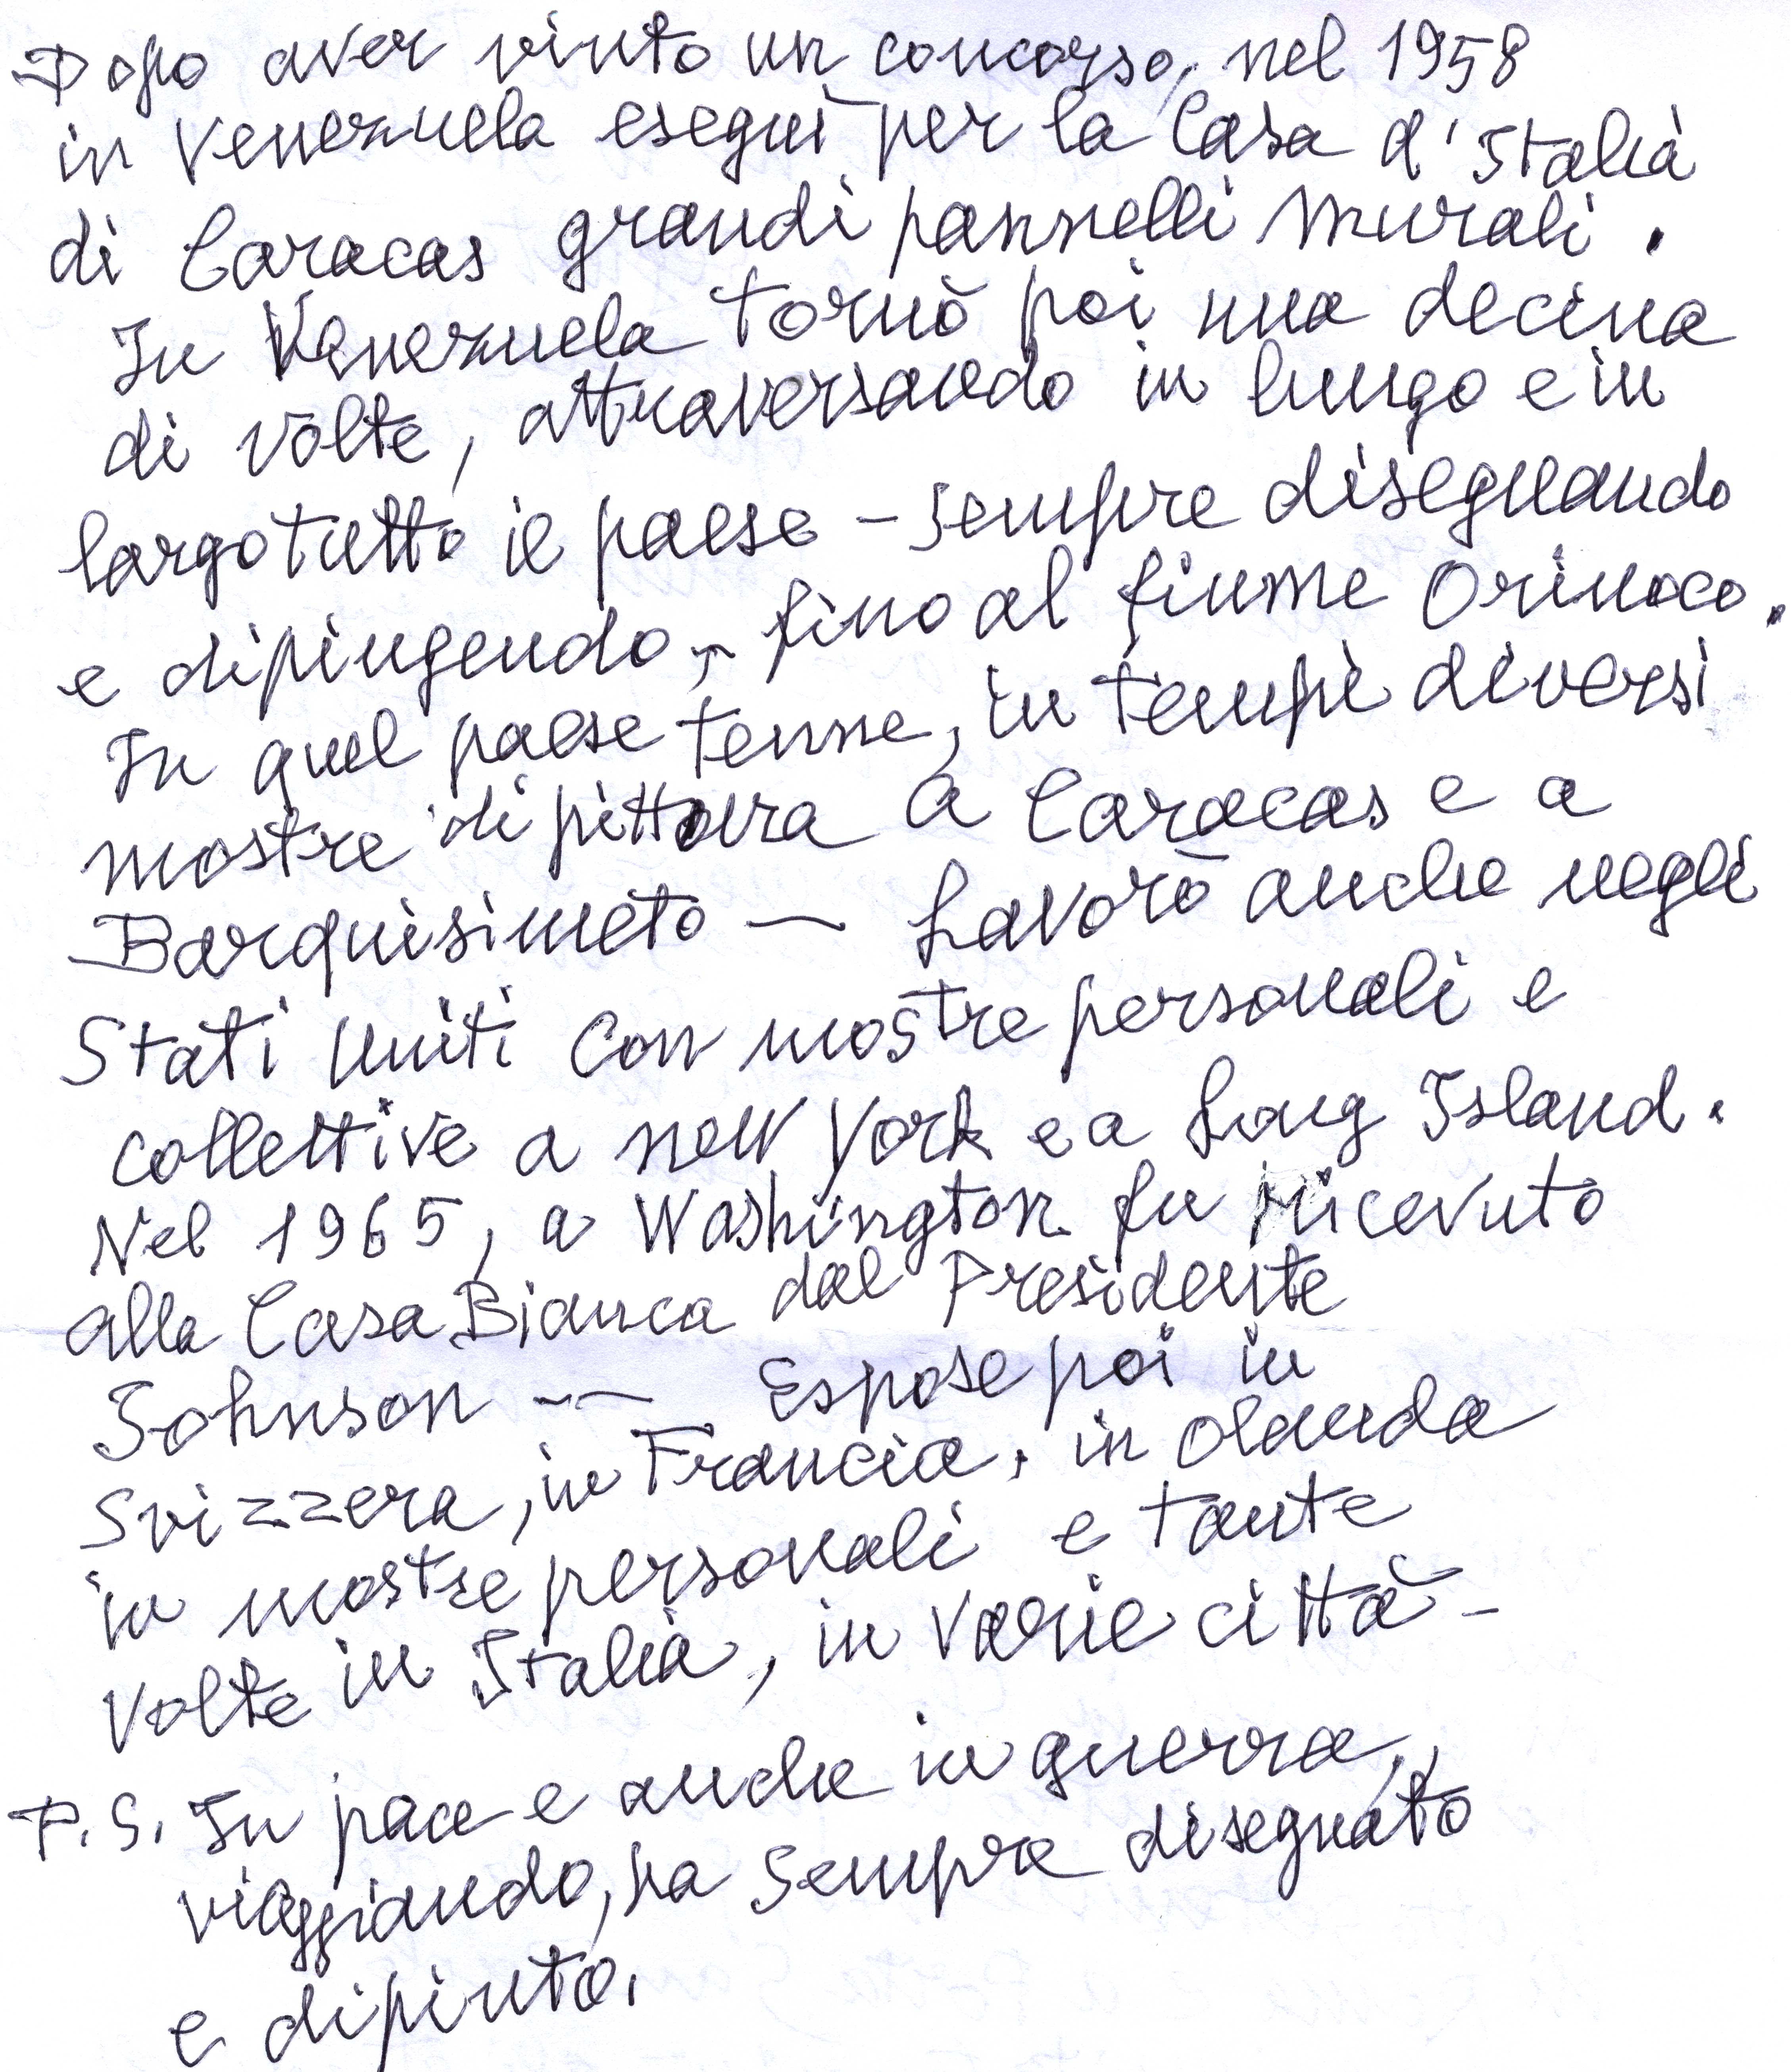 Dopo aver vinto un concorso, nel 1958
in Venezuela eseguì per la Casa d'Italia
di Caracas grandi pannelli murali.
In Venezuela tornò poi una decina
di volte, attraversando in lungo e in
largo tutto il paese - sempre disegnando
e dipingendo, - fino al fiume Orinoco.
In quel paese tenne, in tempi diversi
mostre di pittura a Caracas e a
Barquisimeto — Lavorò anche negli
Stati Uniti con mostre personali e
collettive a New York e a Long Island.
Nel 1965, a Washington fu ricevuto
alla Casa Bianca dal Presidente
Johnson — Espose poi in
Svizzera, in Francia, in Olanda
in mostre personali e tante
volte in Italia, in varie città -
P.S. In pace e anche in guerra,
viaggiando, ha sempre disegnato
e dipinto.